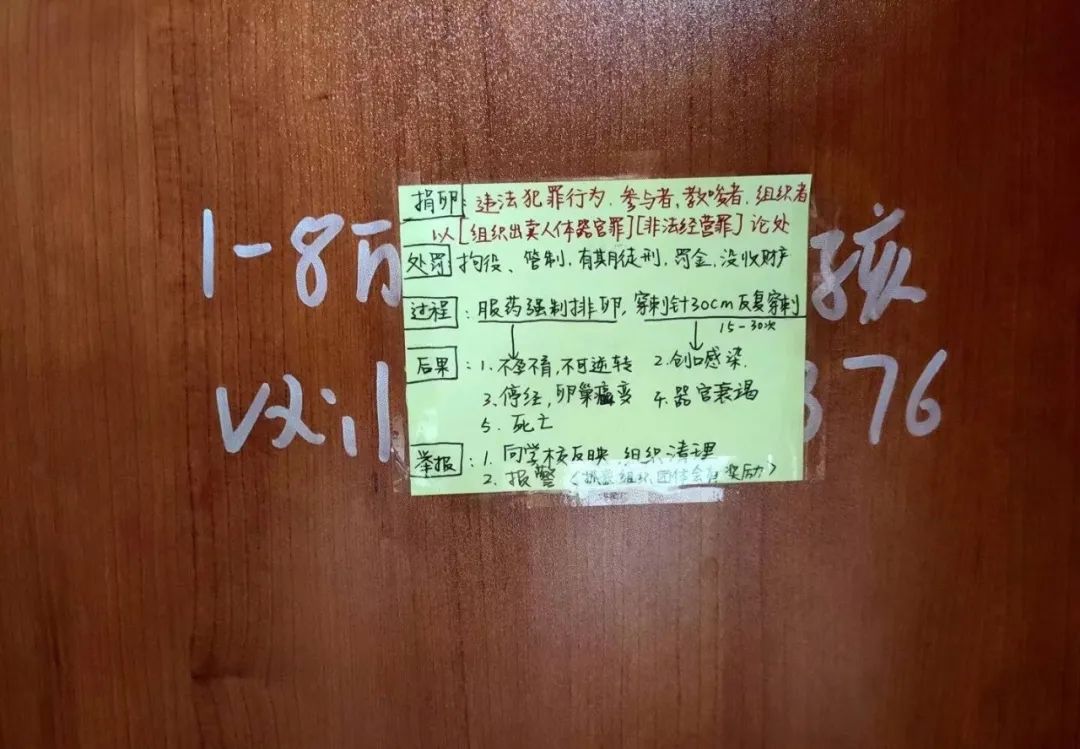 捐卵：违法犯罪行为．参与者，教唆者．组织者
以［组织出卖人体器官罪］［非法经营罪］论处
处罚 拘役、管制，有期徒刑，罚金，没收财产
过程：服药强制排卵，穿刺针30cm反复穿刺
15-30次
后果：1．不孕不育，不可逆转 2．创口感染．
3．停经，卵巢癌变 4．器官衰竭
5．死亡
举报：1．向学校反映，组织清理
2．报警（抓获组织团体会有奖励）
1-8万 孩
376